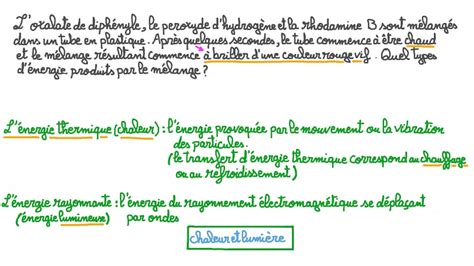 L'oxalate de diphényle, le peroxyde d'hydrogène et la rhodamine B sont mélangés
dans un tube en plastique. Après quelques secondes, le tube commence à être chaud
et le mélange résultant commence à briller d'une couleur rouge vif. Quel types
d'énergie produits par le mélange ?
L'énergie thermique (chaleur) : l'énergie provoquée par le mouvement ou la vibration
des particules.
(le transfert d'énergie thermique correspond au chauffage
ou au refroidissement)
L'énergie rayonnante : l'énergie du rayonnement électromagnétique se déplaçant
(énergie lumineuse) par ondes
chaleur et lumière